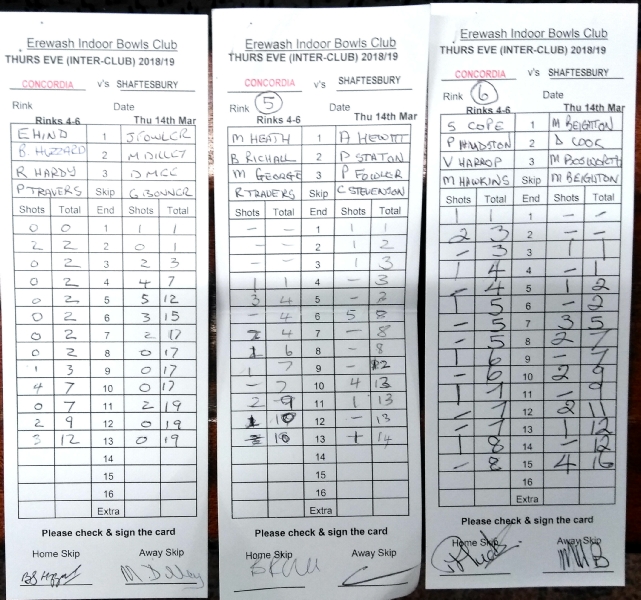 Erewash Indoor Bowls Club
THURS EVE (INTER-CLUB) 2018/19
CONCORDIA v's SHAFTESBURY
Rink Date
Rinks 4-6 Thu 14th Mar
E HIND 1 J FOWLER
B. HUZZARD 2 M DILLEY
R HARDY 3 D MEE
P TRAVERS Skip G BONNER
Shots Total End Shots Total
0 0 1 1 1
2 2 2 0 1
0 2 3 2 3
0 2 4 4 7
0 2 5 5 12
0 2 6 3 15
0 2 7 2 17
0 2 8 0 17
1 3 9 0 17
4 7 10 0 17
0 7 11 2 19
2 9 12 0 19
3 12 13 0 19
14
15
16
Extra
Please check & sign the card
Home Skip Away Skip
Erewash Indoor Bowls Club
THURS EVE (INTER-CLUB) 2018/19
CONCORDIA v's SHAFTESBURY
Rink 5 Date
Rinks 4-6 Thu 14th Mar
M HEATH 1 A HEWITT
B RICHALL 2 D STATON
M GEORGE 3 P FOWLER
R TRAVERS Skip C STEVENSON
Shots Total End Shots Total
- - 1 1 1
- - 2 1 2
- - 3 1 3
1 1 4 - 3
3 4 5 - 3
- 4 6 5 8
4 7 - 8
1 6 8 - 8
1 7 9 -
- 7 10 4 13
2 9 11 1 13
1 10 12 - 13
10 13 14
14
15
16
Extra
Please check & sign the card
Home Skip Away Skip
Erewash Indoor Bowls Club
THURS EVE (INTER-CLUB) 2018/19
CONCORDIA v's SHAFTESBURY
Rink 6 Date
Rinks 4-6 Thu 14th Mar
S COPE 1 M BEIGHTON
P 2 D COOK
V HARROP 3 M BOSWORTH
M HAWKINS Skip M BEIGHTON
Shots Total End Shots Total
1 1 1 - -
2 3 2 - -
- 3 3 1 1
1 4 4 - 1
- 4 5 1 2
1 5 6 - 2
- 5 7 3 5
- 5 8 2 7
1 6 9 - 7
- 6 10 2 9
1 7 11 - 9
- 7 12 2 11
- 7 13 1 12
1 8 14 - 12
- 8 15 4 16
16
Extra
Please check & sign the card
Home Skip Away Skip